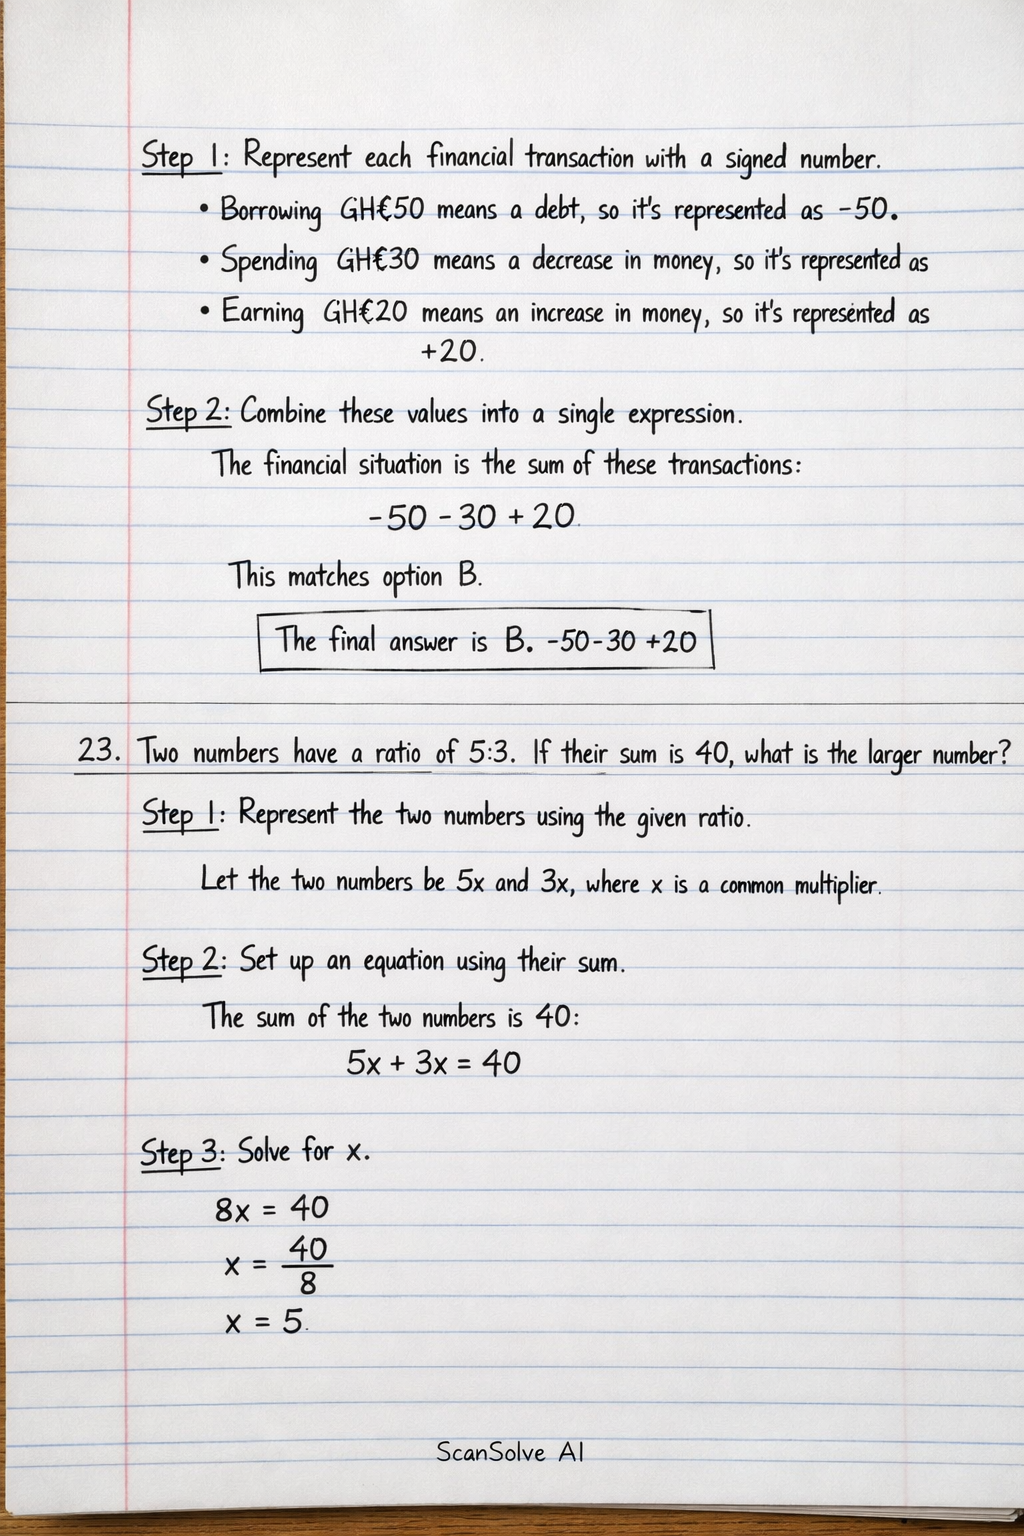 Step 1: Represent each financial transaction with a signed number.
• Borrowing GH€50 means a debt, so it's represented as -50.
• Spending GH€30 means a decrease in money, so it's represented as
• Earning GH€20 means an increase in money, so it's represented as
+20.
Step 2: Combine these values into a single expression.
The financial situation is the sum of these transactions:
-50 - 30 + 20
This matches option B.
The final answer is B. -50-30 +20
23. Two numbers have a ratio of 5:3. If their sum is 40, what is the larger number?
Step 1: Represent the two numbers using the given ratio.
Let the two numbers be 5x and 3x, where x is a common multiplier.
Step 2: Set up an equation using their sum.
The sum of the two numbers is 40:
5x + 3x = 40
Step 3: Solve for x.
8x = 40
x = 40/8
x = 5.
ScanSolve AI